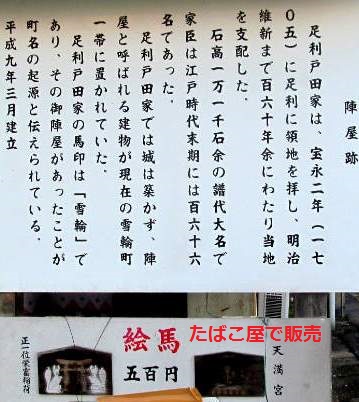 陣屋跡
足利戸田家は、宝永二年（一七
〇五）に足利に領地を拝し、明治
維新まで百六十年余にわたり当地
を支配した。
石高一万一千石余の譜代大名で
家臣は江戸時代末期には百六十六
名であった。
足利戸田家では城は築かず、陣
屋と呼ばれる建物が現在の雪輪町
一帯に置かれていた。
足利戸田家の馬印は「雪輪」で
あり、その御陣屋があったことが
町名の起源と伝えられている。
平成九年三月建立
天満宮
絵馬
たばこ屋で販売
五百円
正一位栄富稲荷